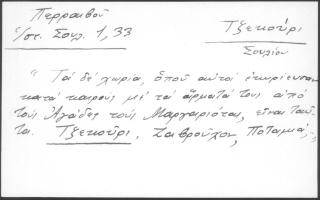 Περραιβοῦ
ἱστ. Σουλ. 1, 33
Τζεκούρι
Σουλίου
"Τά δέ χωρία, ὁποῦ αὐτοί ἐκυρίευσαν
κατά καιρούς μέ τά ἅρματά τους ἀπό
τούς Ἀγάδες τούς Μαργαριώτας, εἶναι ταῦ-
τα. Τζεκούρι, Σαβροῦχον, Ποταμιά,